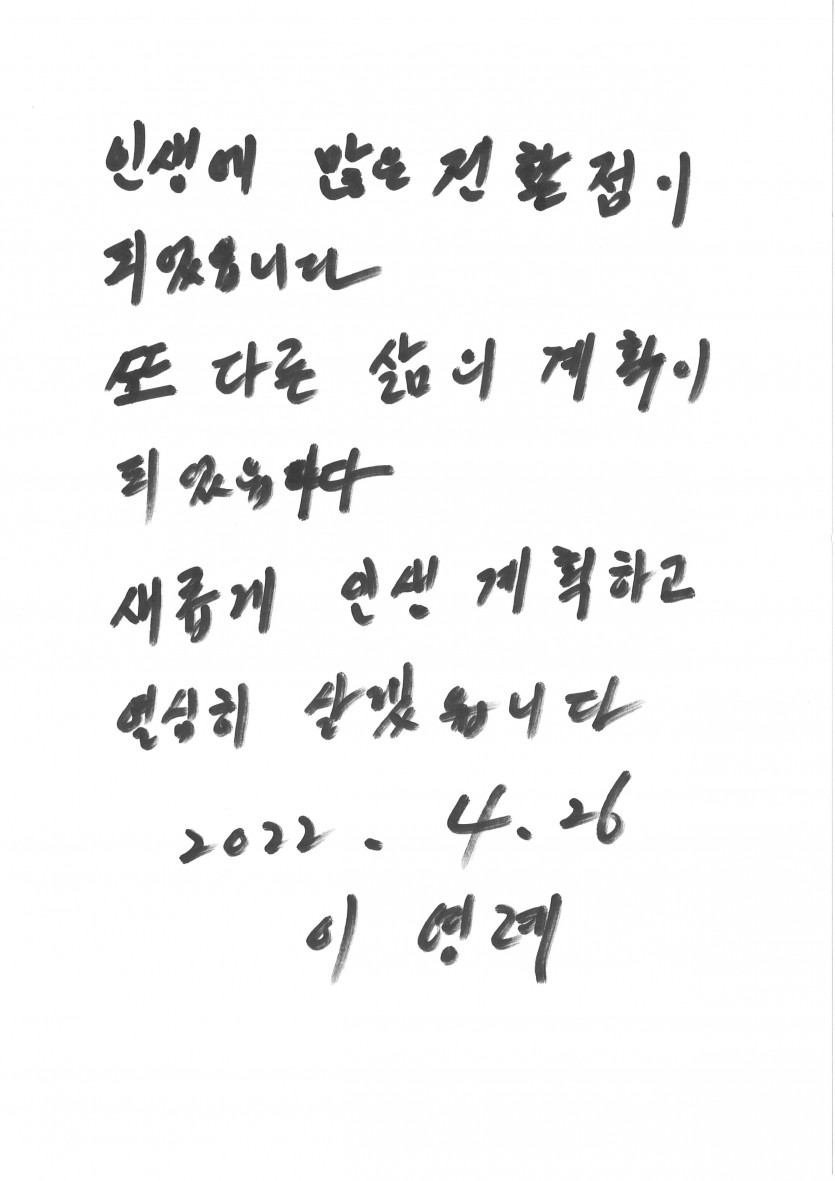 인생에 많은 전활점이
되었읍니다
또 다른 삶의 계획이
되었읍니다
새롭게 인생 계획하고
열심히 살겠읍니다
2022. 4. 26
이 영례